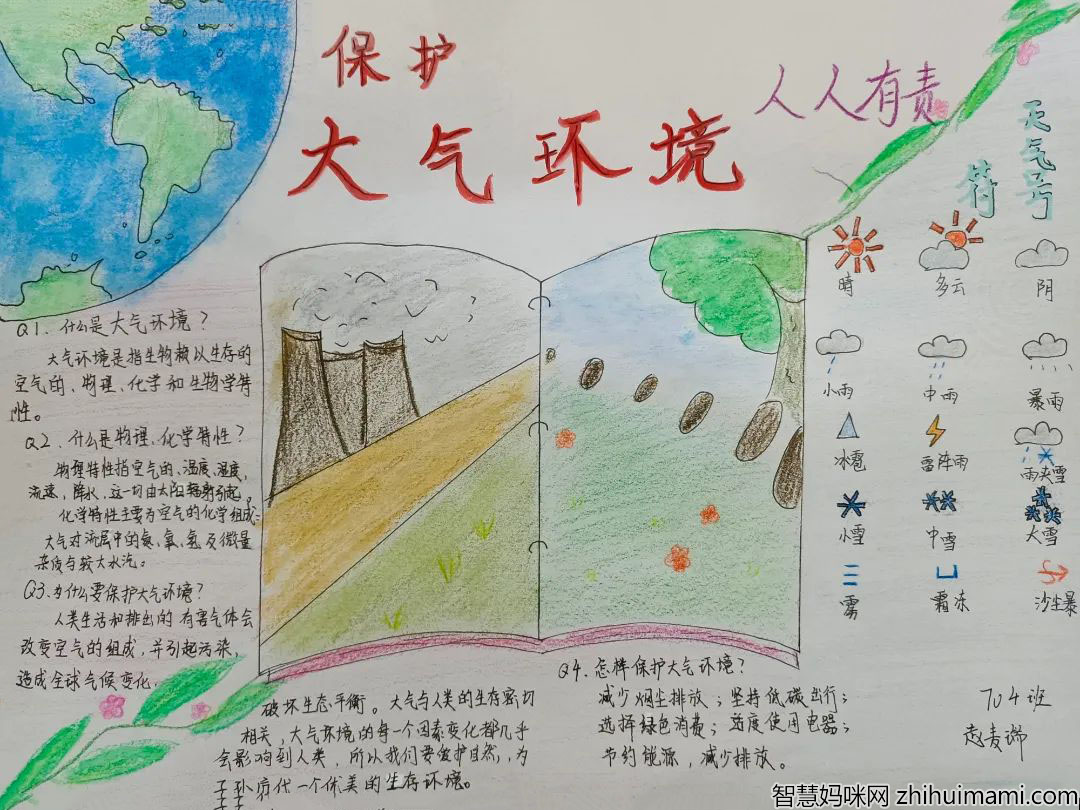 保护
大气环境
人人有责
天气
符号
Q1.什么是大气环境？
大气环境是指生物赖以生存的
空气的、物理、化学和生物学特
性。
Q2.什么是物理、化学特性？
物理特性指空气的、温度、湿度，
流速，降水，这一切由太阳辐射引起。
化学特性主要为空气的化学组成：
大气对流层中的氮、氧、氢及微量
杂质与较大水汽。
Q3.为什么要保护大气环境？
人类生活和排出的有害气体会
改变空气的组成，并引起污染，
造成全球气候变化，
破坏生态平衡。大气与人类的生存密切
相关，大气环境的每一个因素变化都几乎
会影响到人类，所以我们要爱护自然，为
子孙后代一个优美的生存环境。
Q4.怎样保护大气环境？
减少烟尘排放；坚持低碳出行；
选择绿色消费；适度使用电器；
节约能源，减少排放。
晴 多云 阴
小雨 中雨 暴雨
冰雹 雷阵雨 雨夹雪
小雪 中雪 大雪
雾 霜冻 沙尘暴
704班
智慧妈咪网 zhihuimami.com